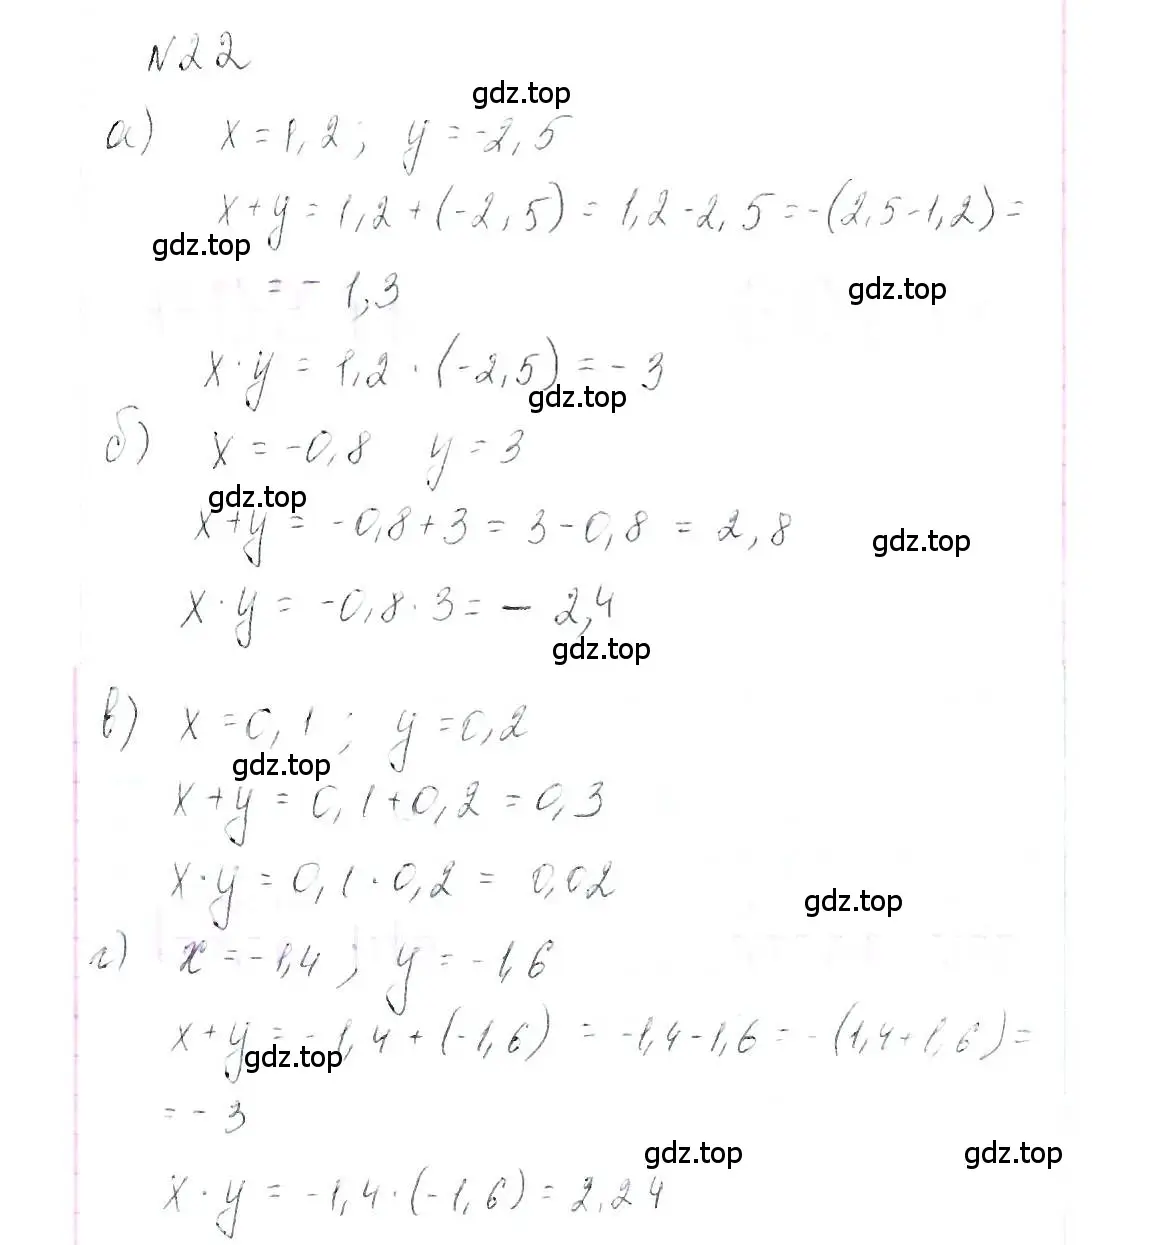 N22
gdz.top
а) x = 1,2; y = -2,5
x + y = 1,2 + (-2,5) = 1,2 - 2,5 = -(2,5 - 1,2) =
gdz.top
= - 1,3
gdz.top
x · y = 1,2 · (-2,5) = - 3
gdz.top
б) x = -0,8 y = 3
gdz.top
x + y = -0,8 + 3 = 3 - 0,8 = 2,8
gdz.top
x · y = -0,8 · 3 = - 2,4
gdz.top
в) x = 0,1; y = 0,2
gdz.top
x + y = 0,1 + 0,2 = 0,3
x · y = 0,1 · 0,2 = 0,02
gdz.top
г) x = -1,4; y = -1,6
x + y = -1,4 + (-1,6) = -1,4 - 1,6 = -(1,4 + 1,6) =
gdz.top
= - 3
gdz.top gdz.top
x · y = -1,4 · (-1,6) = 2.24